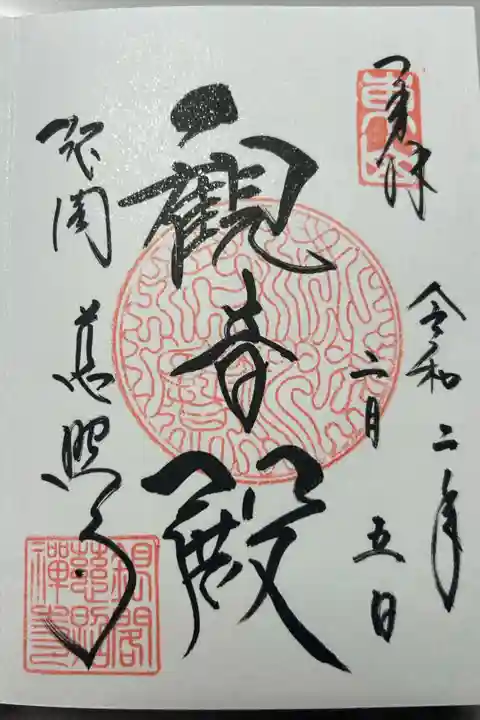 奉拝
東山
令和二年
二月五日
観音殿
銀閣 慈照寺
銀閣
慈照
禅寺